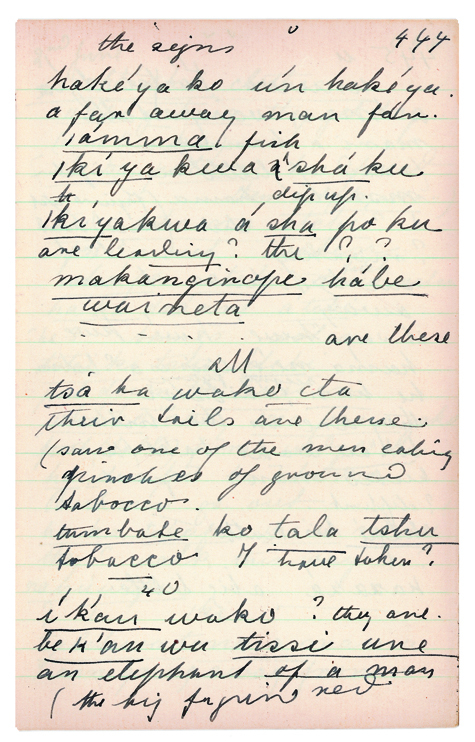 444
the signs
hakéya ko ún hakéya.
a far away man far.
iámma fish
Ikíya kwa áshá ku
dip up.
Ikíyakwa á sha po ku
are leading? the ? ?
makanginope hábe
waineta
are these
all
tsá ha wako cta
their tails are these.
(saw one of the men eating
pinches of ground
tobocco.
tumbate ko tala tshu
tobacco I have taken?
íkán wako ? they are.
bekán wu tissi une
an elephant of a man
(the big figure red